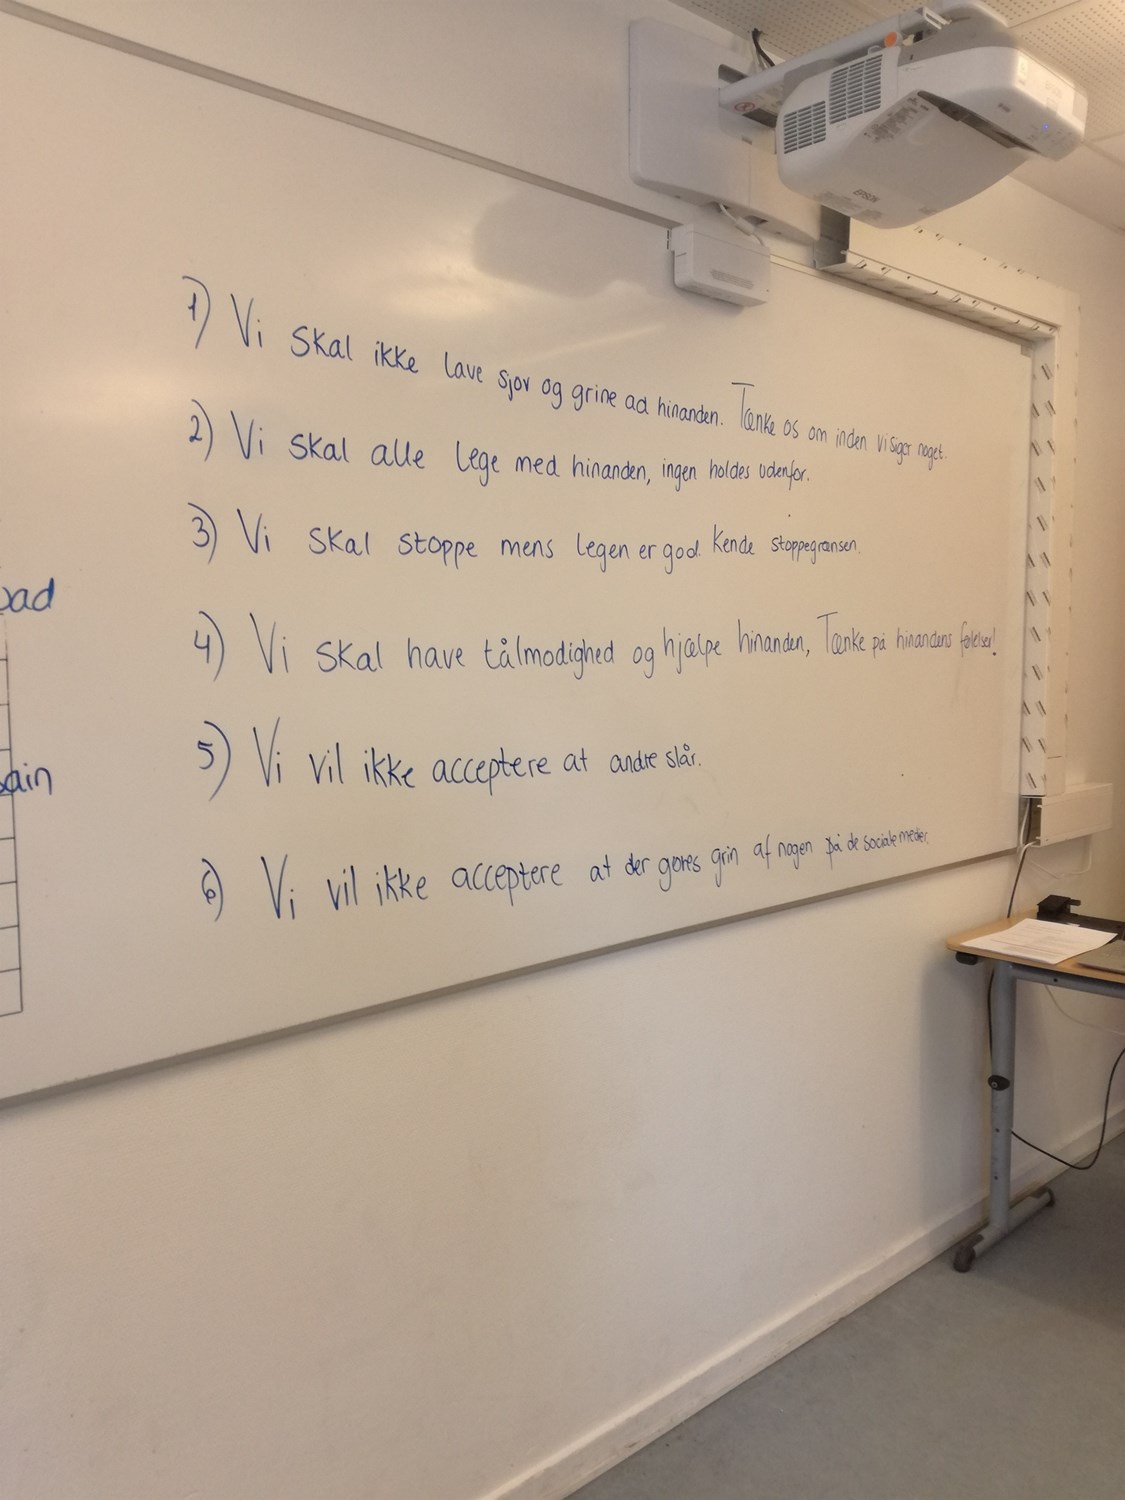 1) Vi skal ikke lave sjov og grine ad hinanden. Tænke os om inden vi siger noget.
2) Vi skal alle lege med hinanden, ingen holdes udenfor.
3) Vi skal stoppe mens legen er god. Kende stoppegrænsen.
4) Vi skal have tålmodighed og hjælpe hinanden, Tænke på hinandens følelser!
5) Vi vil ikke acceptere at andre slår.
6) Vi vil ikke acceptere at der gøres grin af nogen på de sociale medier.
EPSON